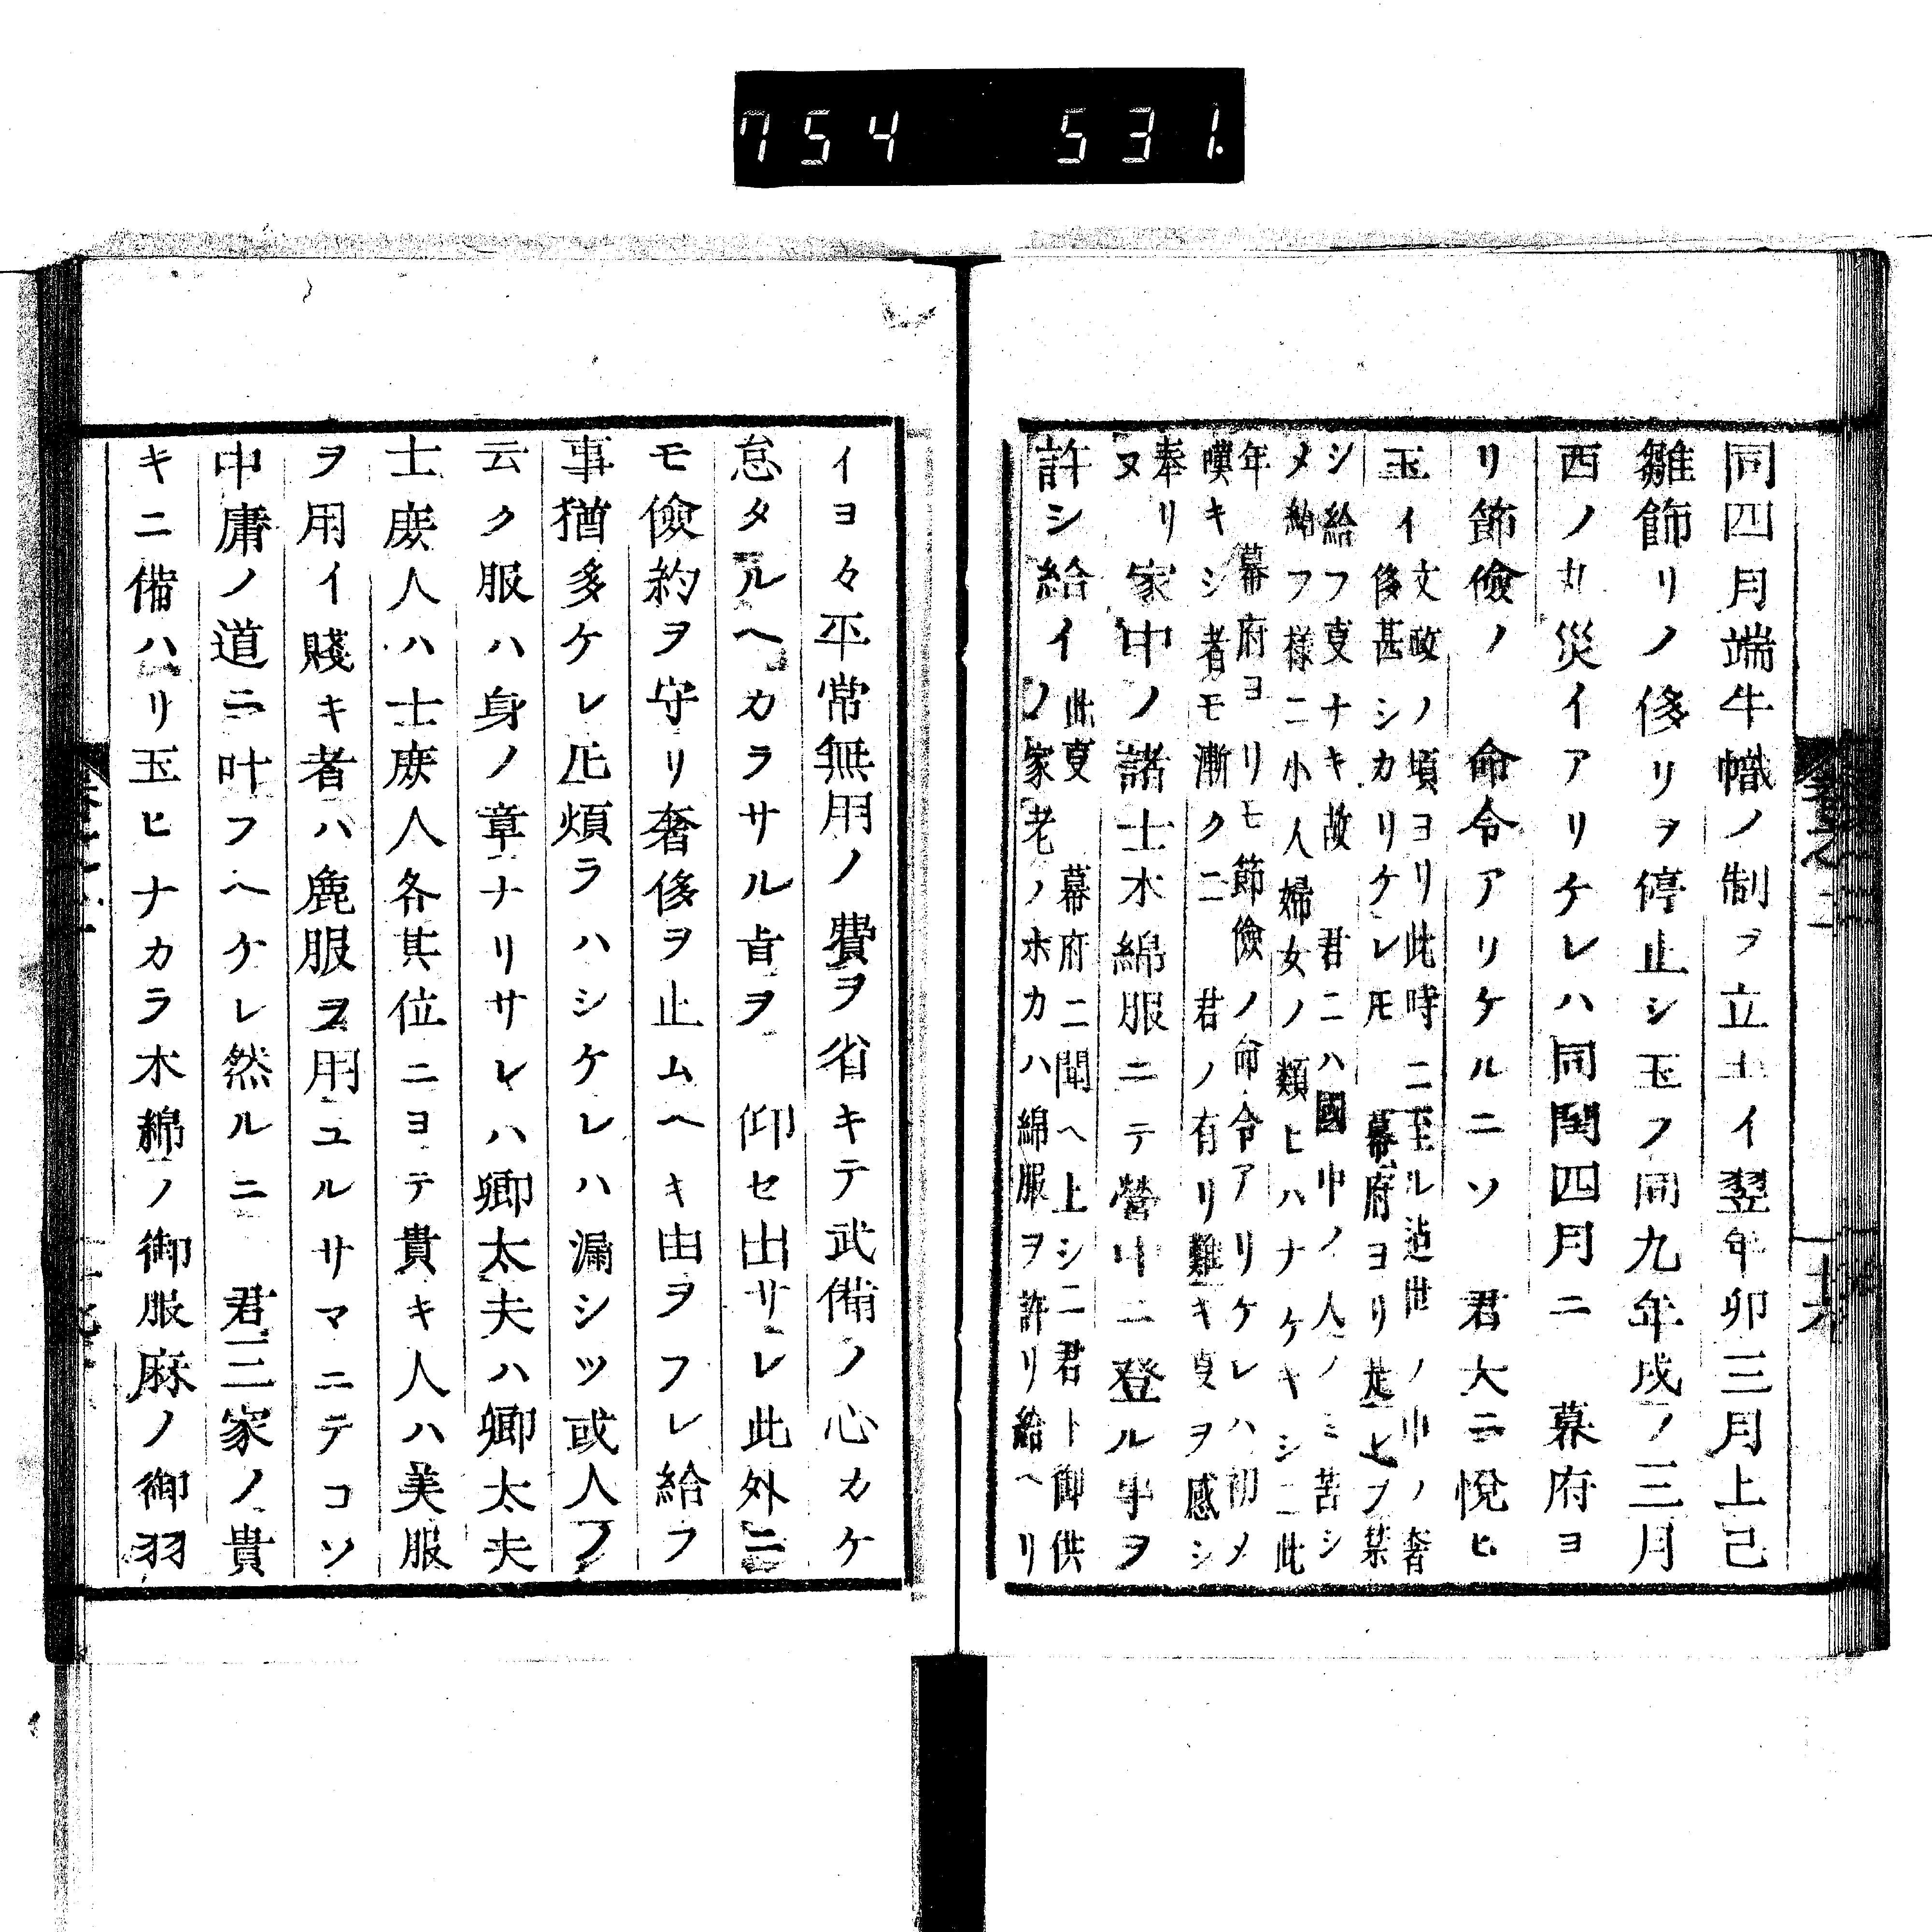 754 531.
同四月端牛幟ノ制ヲ立玉イ翌年卯三月上己
雛飾リノ侈リヲ停止シ玉フ同九年戌ノ三月
西ノ丸災イアリケレハ同閏四月ニ 幕府ヨ
リ節儉ノ 命令アリケルニソ 君大ニ悅ヒ
玉イ
文政ノ頃ヨリ此時ニ至ル迠世ノ中ノ奢
侈甚シカリケレ𪜈 幕府ヨリ是ヒヲ禁
シ給フ㕝ナキ故 君ニハ國中ノ人ノミ苦シ
メ給フ様ニ小人婦女ノ類ヒハナケキシニ此
年 幕府ヨリモ節儉ノ命令アリケレハ初メ
嘆キシ者モ漸クニ 君ノ有リ難キ㕝ヲ感シ
奉リ
ヌ
家中ノ諸士木綿服ニテ營中ニ登ル事ヲ
許シ給イ
此㕝 幕府ニ聞ヘ上シニ君ト御供
ノ家老ノホカハ綿服ヲ許リ給ヘリ
イヨ々平常無用ノ費ヲ省キテ武備ノ心カケ
怠タルヘカラサル㫖ヲ 仰セ出サレ此外ニ
モ儉約ヲ守リ奢侈ヲ止ムヘキ由ヲフレ給フ
事猶多ケレ𪜈煩ラハシケレハ漏シツ或人ノ
云ク服ハ身ノ章ナリサレハ卿太夫ハ卿太夫
士庻人ハ士庻人各其位ニヨテ貴キ人ハ美服
ヲ用イ賤キ者ハ麁服ヲ用ユルサマニテコソ
中庸ノ道ニ叶フヘケレ然ルニ 君三家ノ貴
キニ備ハリ玉ヒナカラ木綿ノ御服麻ノ御羽